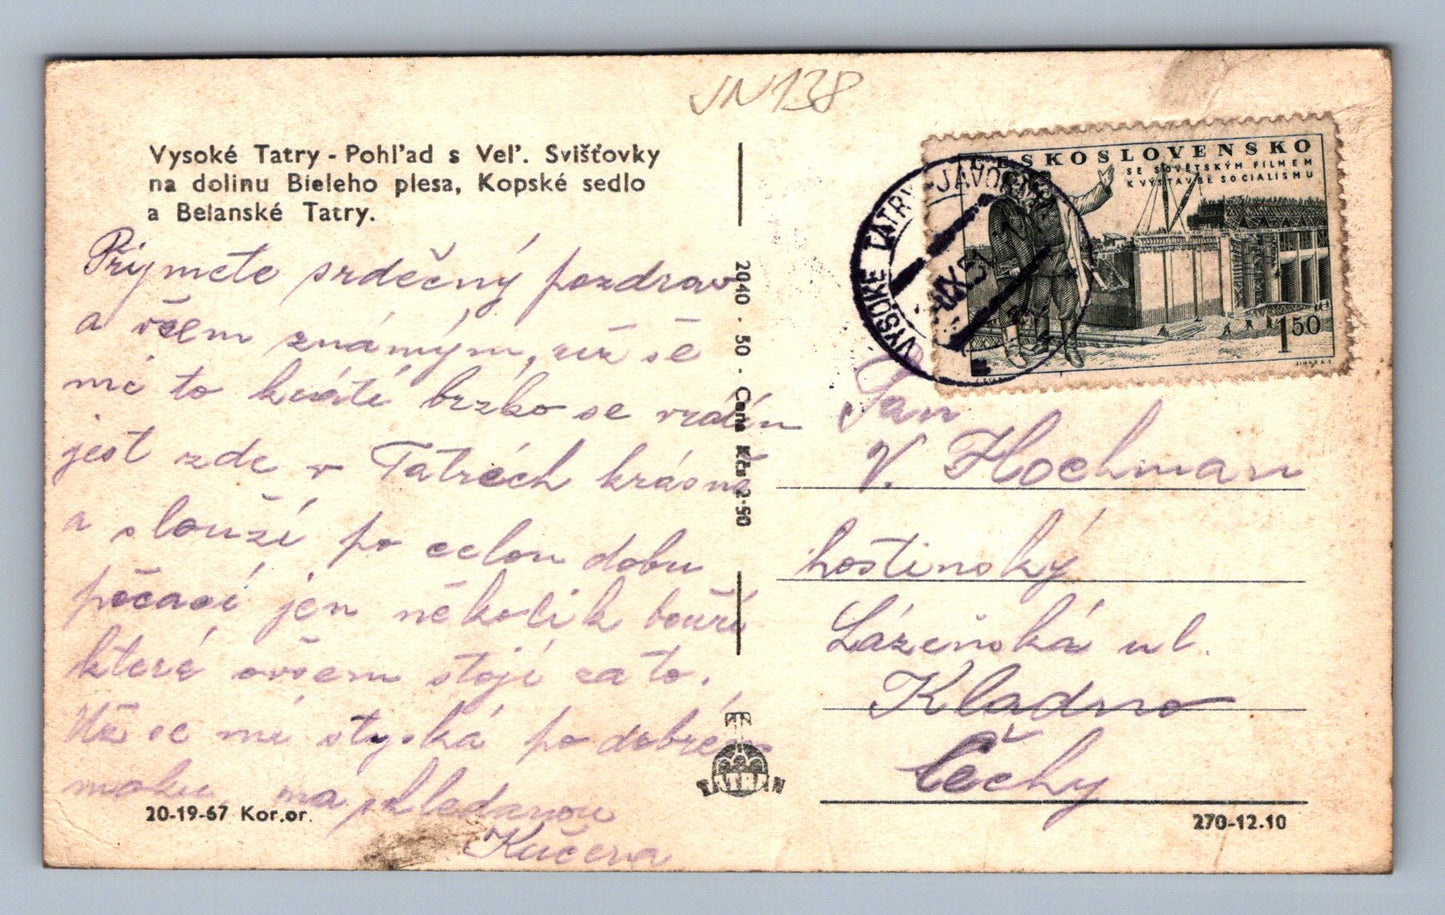 JN138
Vysoké Tatry - Pohľad s Veľ. Svišťovky
na dolinu Bieleho plesa, Kopské sedlo
a Belanské Tatry.
Přijmete srdečný pozdrav
a všem známým, už se
mě to krátí brzko se vrátím
jest zde v Tatrách krásně
a slouží po celou dobu
počasí jen několik bouří
které ovšem stojí za to.
Už se mě stýská po dobrém
moku, na shledanou
Kučera
20-19-67 Kor.or.
2040 - 50 - Cena Kčs 2·50
TATRAN
ČESKOSLOVENSKO
SE SOVĚTSKÝM FILMEM
K VÝSTAVBĚ SOCIALISMU
1.50
VYSOKÉ TATRY-JAVORINA
Pan
V. Hochman
hostinský
Lázeňská ul.
Kladno
Čechy
270-12.10